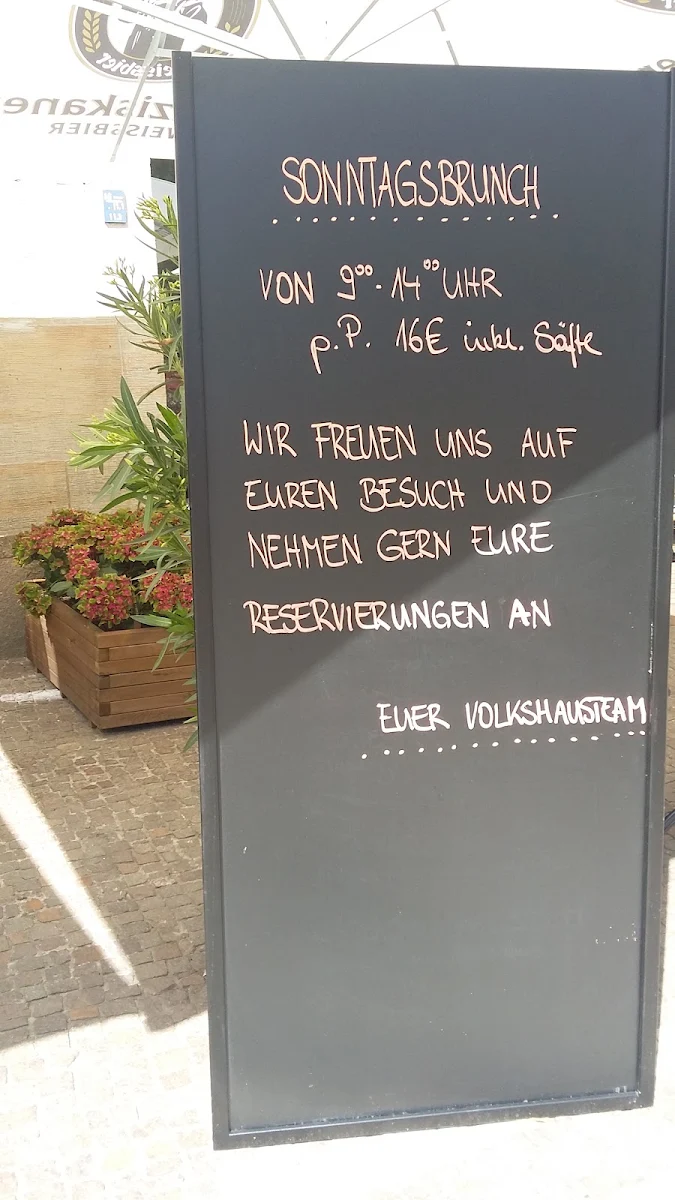 SONNTAGSBRUNCH
VON 9⁰⁰-14⁰⁰ UHR
p.P. 16€ inkl. Säfte
WIR FREUEN UNS AUF
EUREN BESUCH UND
NEHMEN GERN EURE
RESERVIERUNGEN AN
EUER VOLKSHAUSTEAM
ziskane
WEISSBIER